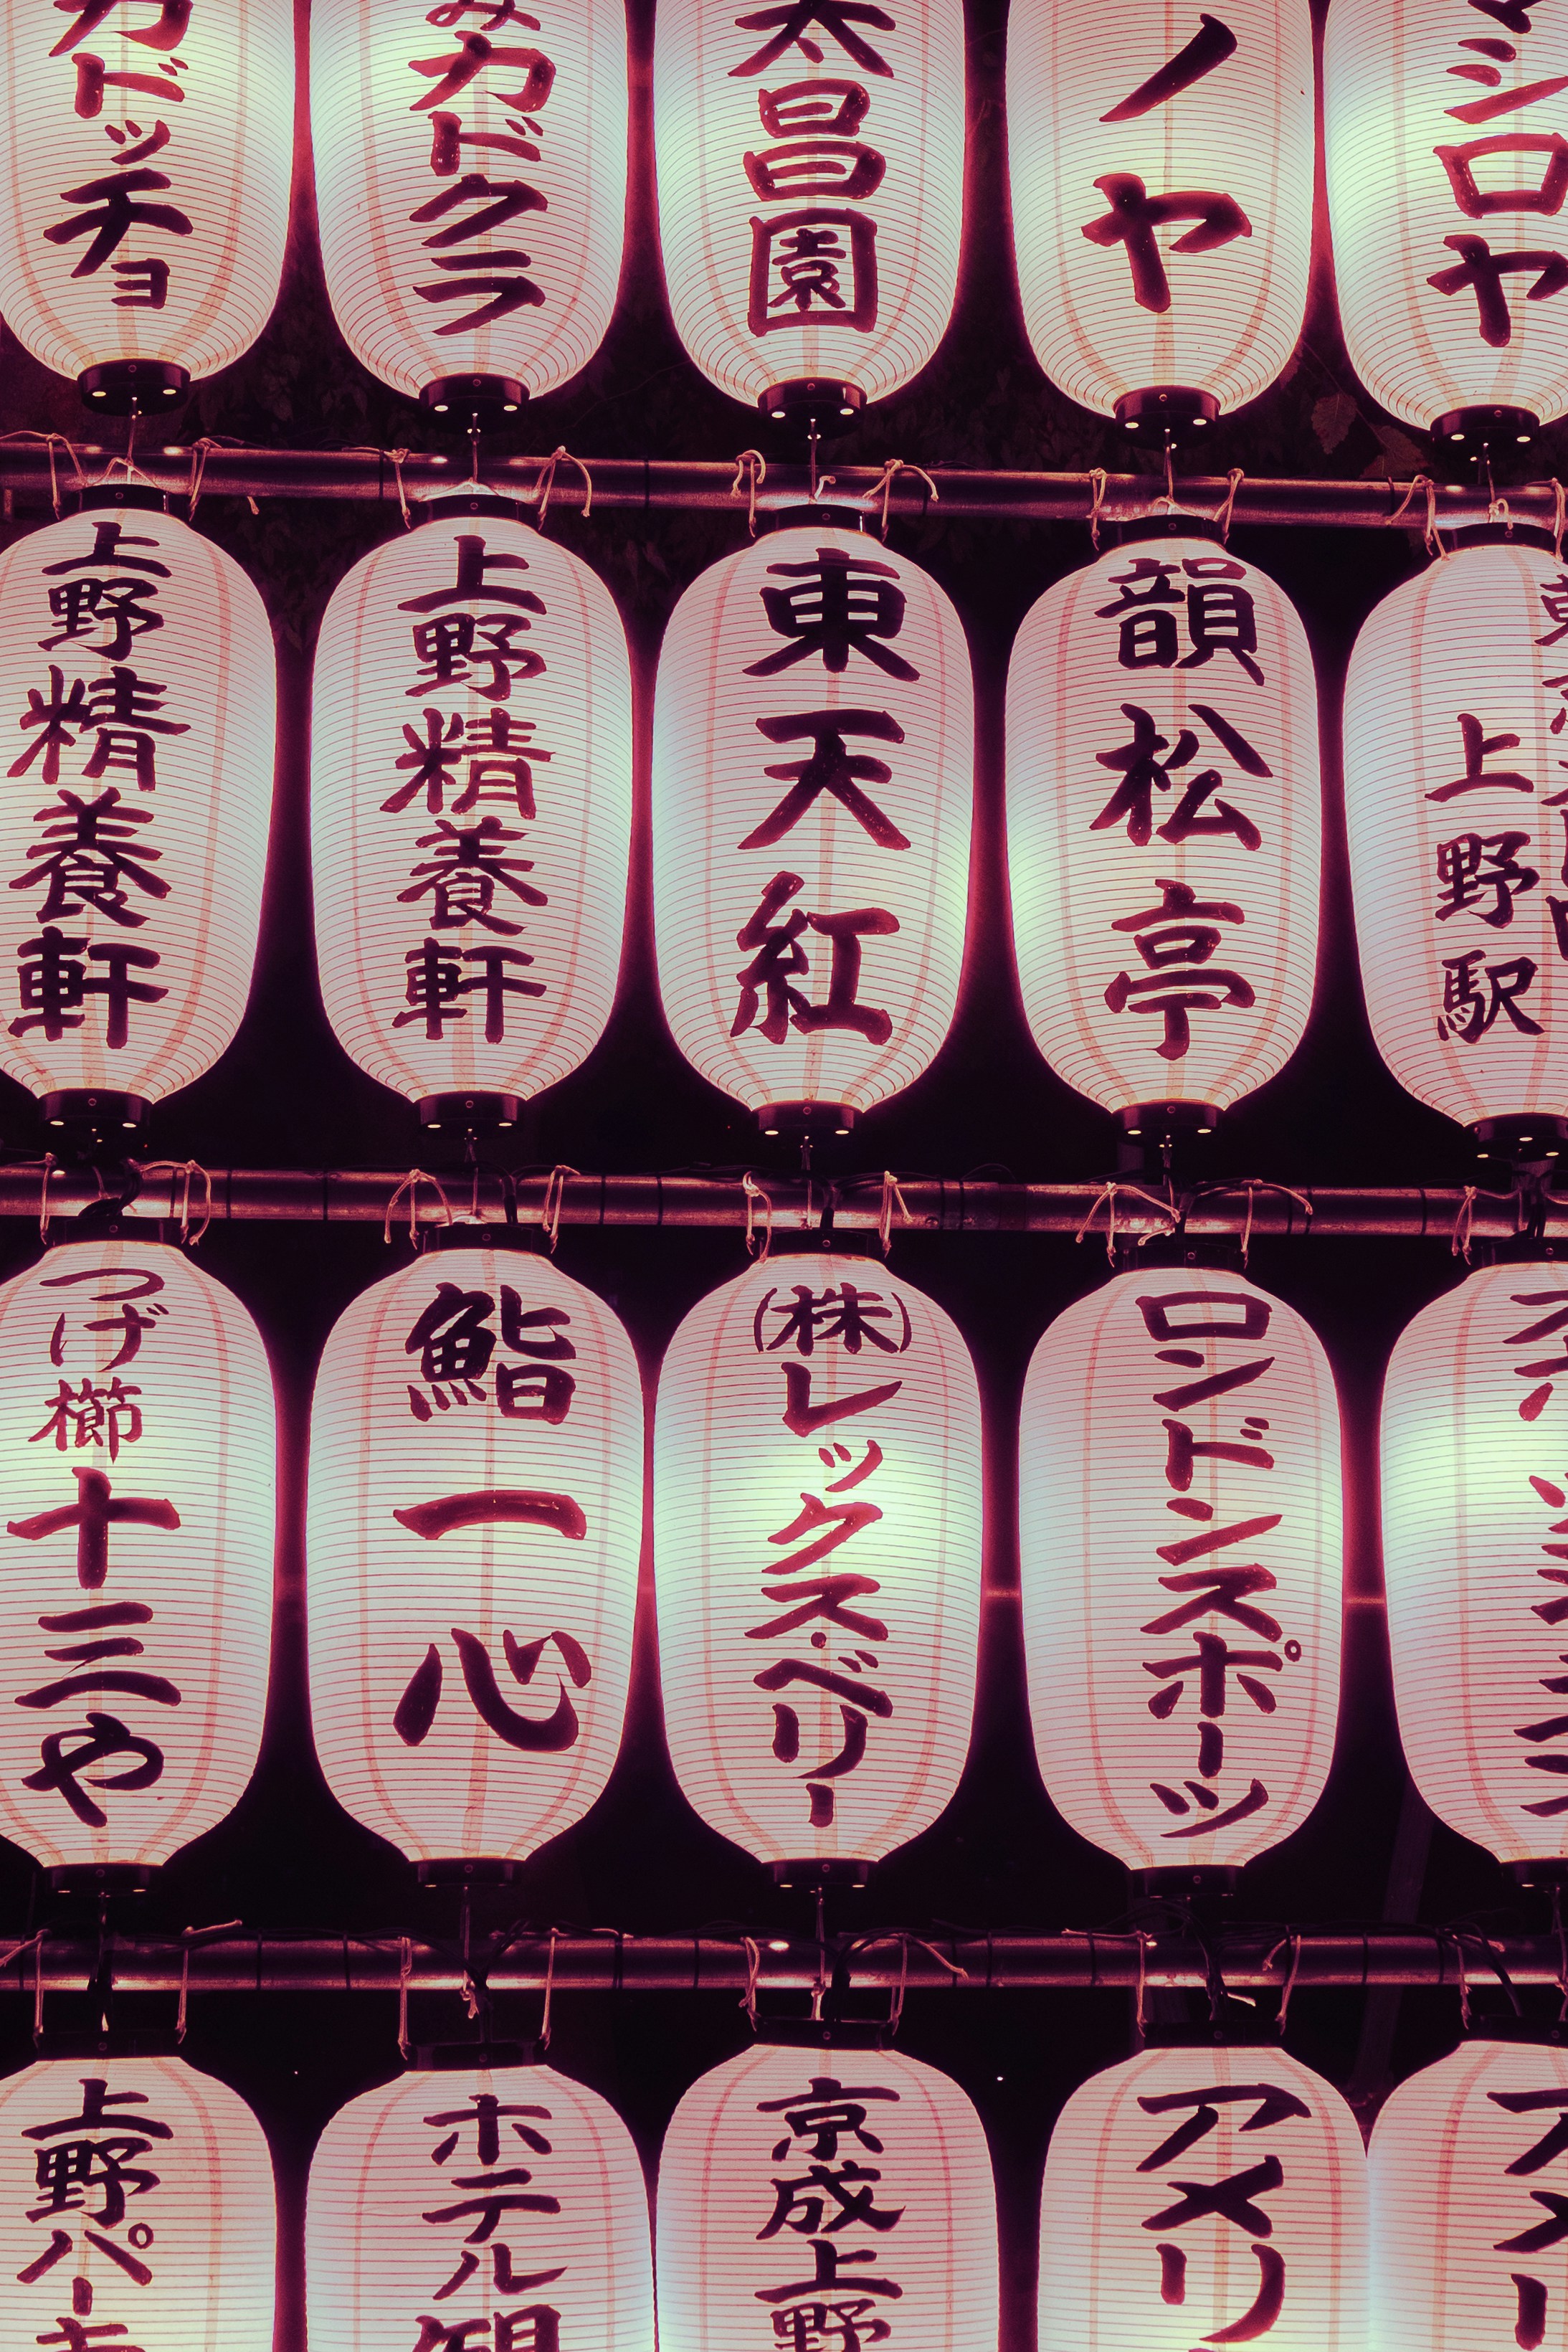 カドッチョ
みカドクラ
太昌園
ノヤ
マシロヤ
上野精養軒
上野精養軒
東天紅
韻松亭
上野駅
つげ櫛十三や
鮨一心
(株)レックス・ベリー
ロンドンスポーツ
上野パーキ
ホテル観
京成上野
アメリ
アメ